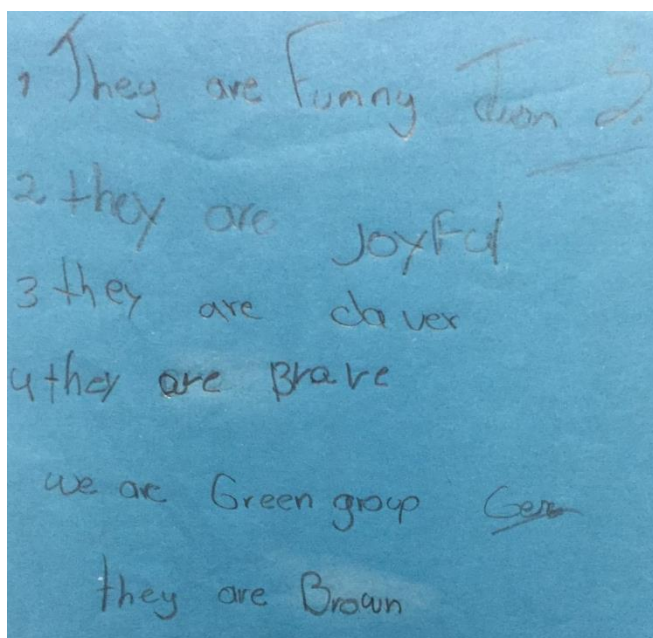 1 They are Funny
2 they are Joyful
3 they are claver
4 they are Brave
we are Green group
they are Brown